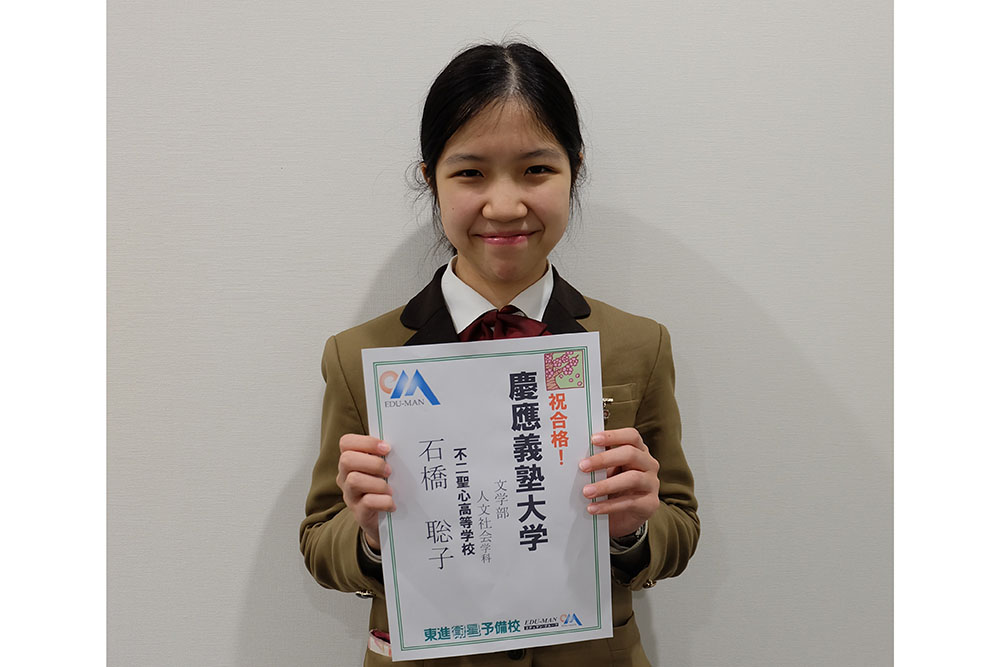 祝合格！
慶應義塾大学
文学部
人文社会学科
不二聖心高等学校
石橋 聡子
EDU-MAN
東進衛星予備校
EDU-MAN